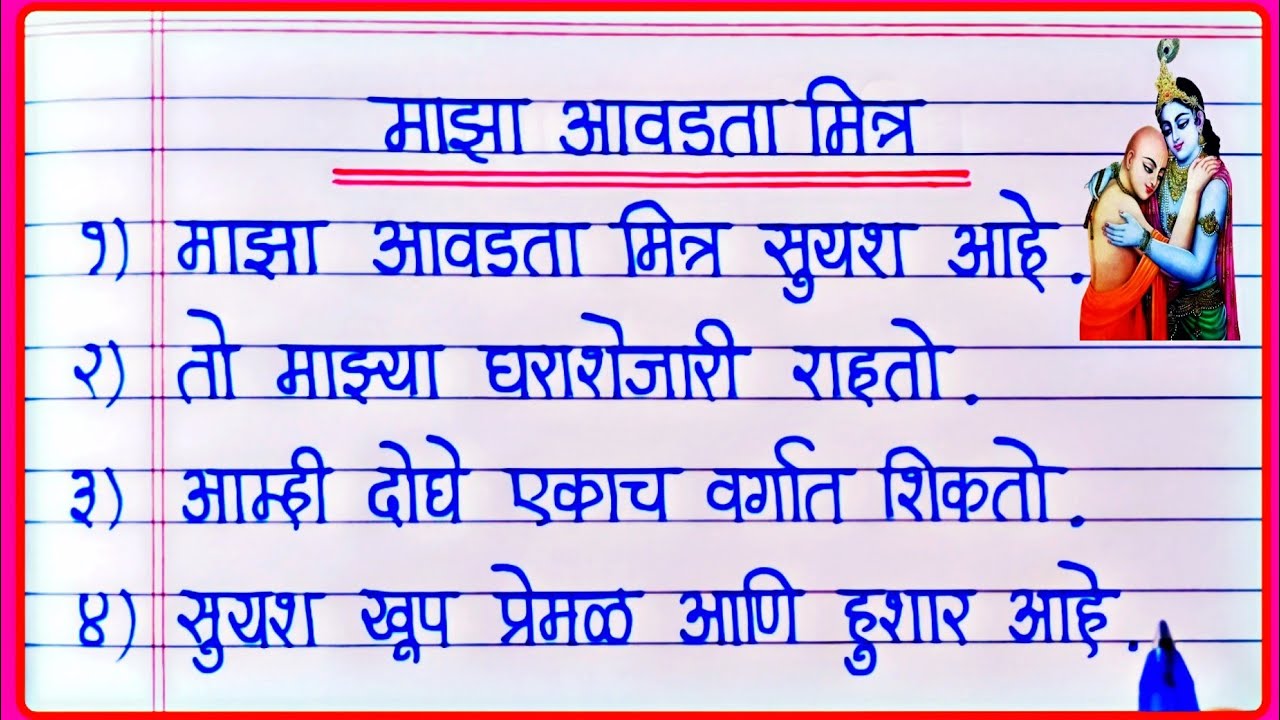 माझा आवडता मित्र
१) माझा आवडता मित्र सुयश आहे.
२) तो माझ्या घराशेजारी राहतो.
३) आम्ही दोघे एकाच वर्गात शिकतो.
४) सुयश खूप प्रेमळ आणि हुशार आहे.